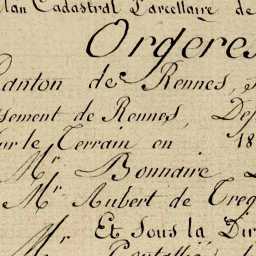 lan Cadastral Parcellaire de
Orgères
Canton de Rennes,
sement de Rennes, Dép
ur le Terrain en 18
Mr Bonnaire
Mr Aubert de Treg
Et Sous la Dir
Mr